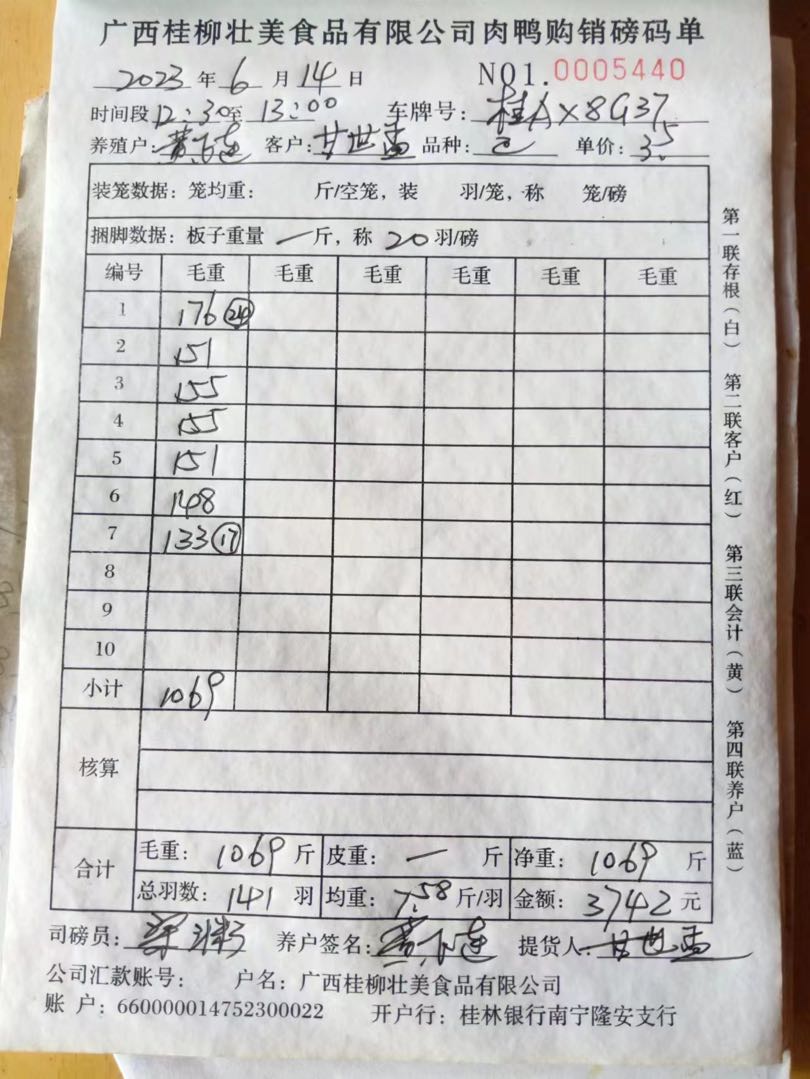 广西桂柳壮美食品有限公司肉鸭购销磅码单
2023年6月14日 NO1.0005440
时间段12:30至13:00 车牌号:桂AX8G37
养殖户: 客户:甘世 品种: 单价:3.5
装笼数据:笼均重: 斤/空笼,装 羽/笼,称 笼/磅
捆脚数据:板子重量 一斤,称 20羽/磅
编号 毛重 毛重 毛重 毛重 毛重 毛重
1 176 24
2 151
3 155
4 155
5 151
6 148
7 133 17
8
9
10
小计 1069
核算
合计
毛重: 1069斤 皮重: 一 斤 净重: 1069 斤
总羽数: 141 羽 均重: 7.58斤/羽 金额: 3742元
司磅员: 养户签名: 提货人:甘世
公司汇款账号: 户名:广西桂柳壮美食品有限公司
账 户:660000014752300022 开户行:桂林银行南宁隆安支行
第一联存根(白) 第二联客户(红) 第三联会计(黄) 第四联养户(蓝)